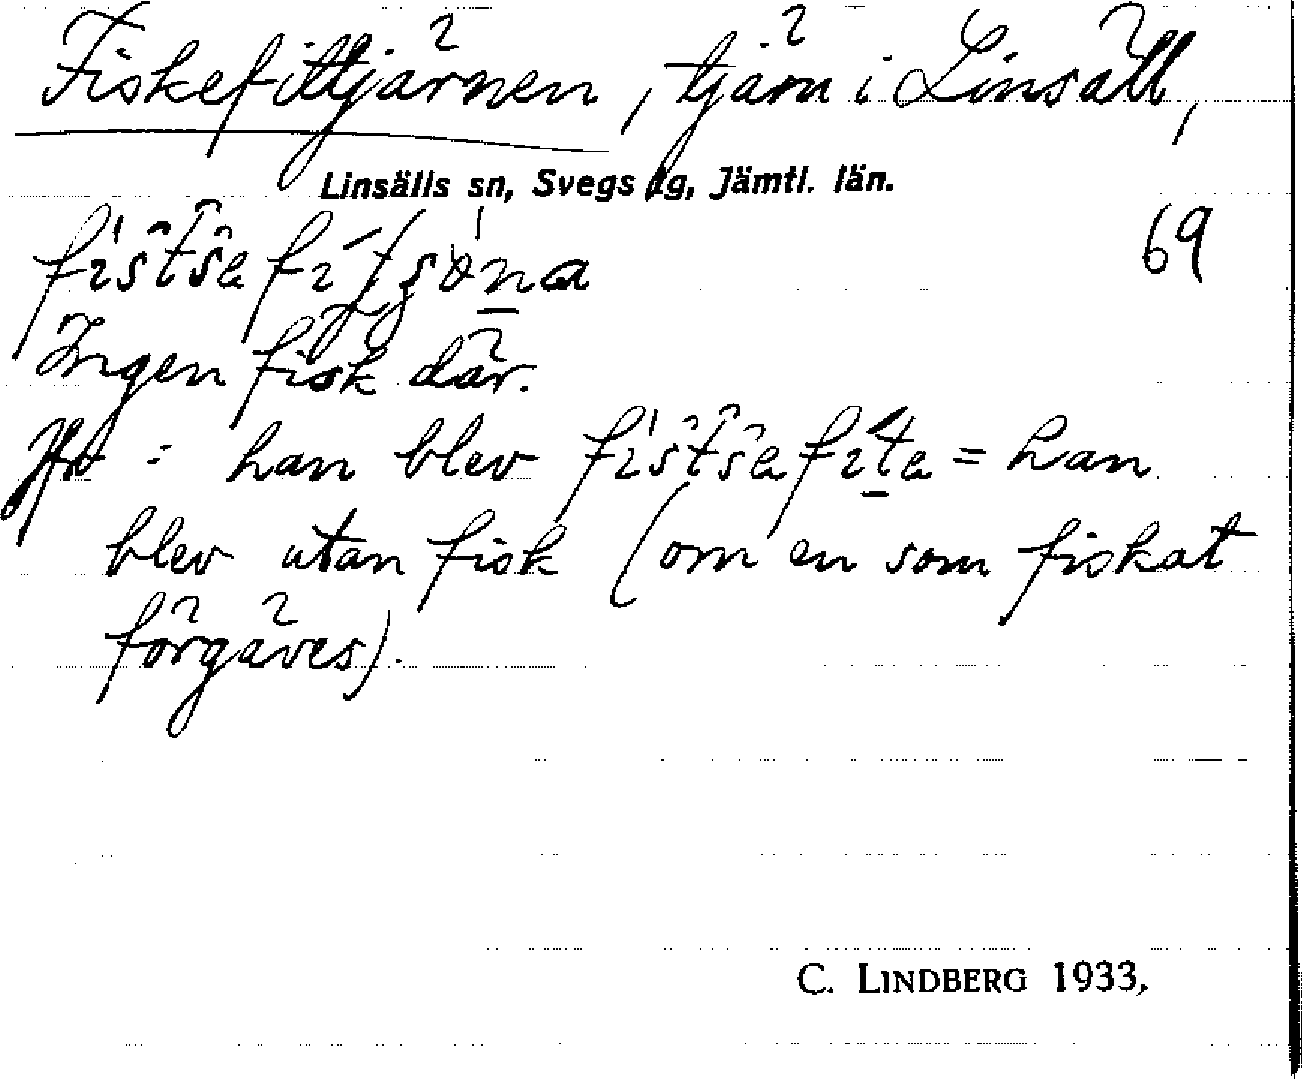 Fiskefittjärnen, tjärn i Linsäll,
Linsälls sn, Svegs tg, Jämtl. län.
69
Ingen fisk där.
Jfr: han blev = han
blev utan fisk (om en som fiskat
förgäves).
C. LINDBERG 1933,